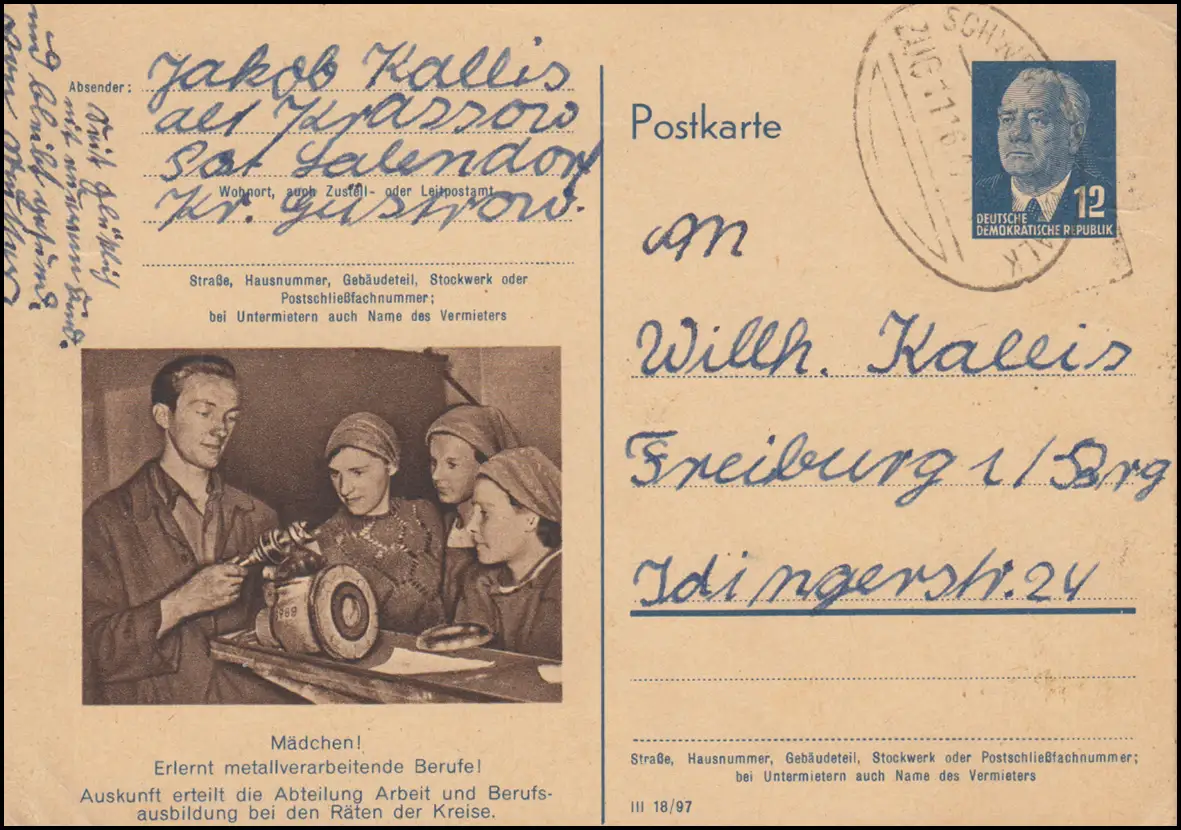 Absender:
Jakob Kallis
alt Krassow
Post Lalendorf
Kr. Güstrow.
Wohnort, auch Zustell- oder Leitpostamt
Straße, Hausnummer, Gebäudeteil, Stockwerk oder
Postschließfachnummer;
bei Untermietern auch Name des Vermieters
und bleibt gesund.
1889
Mädchen!
Erlernt metallverarbeitende Berufe!
Auskunft erteilt die Abteilung Arbeit und Berufs-
ausbildung bei den Räten der Kreise.
Postkarte
SCHW
ZUG 711
ALK
12
DEUTSCHE
DEMOKRATISCHE REPUBLIK
An
Willh. Kallis
Freiburg i/Brg
Idingerstr. 24
Straße, Hausnummer, Gebäudeteil, Stockwerk oder Postschließfachnummer;
bei Untermietern auch Name des Vermieters
III 18/97